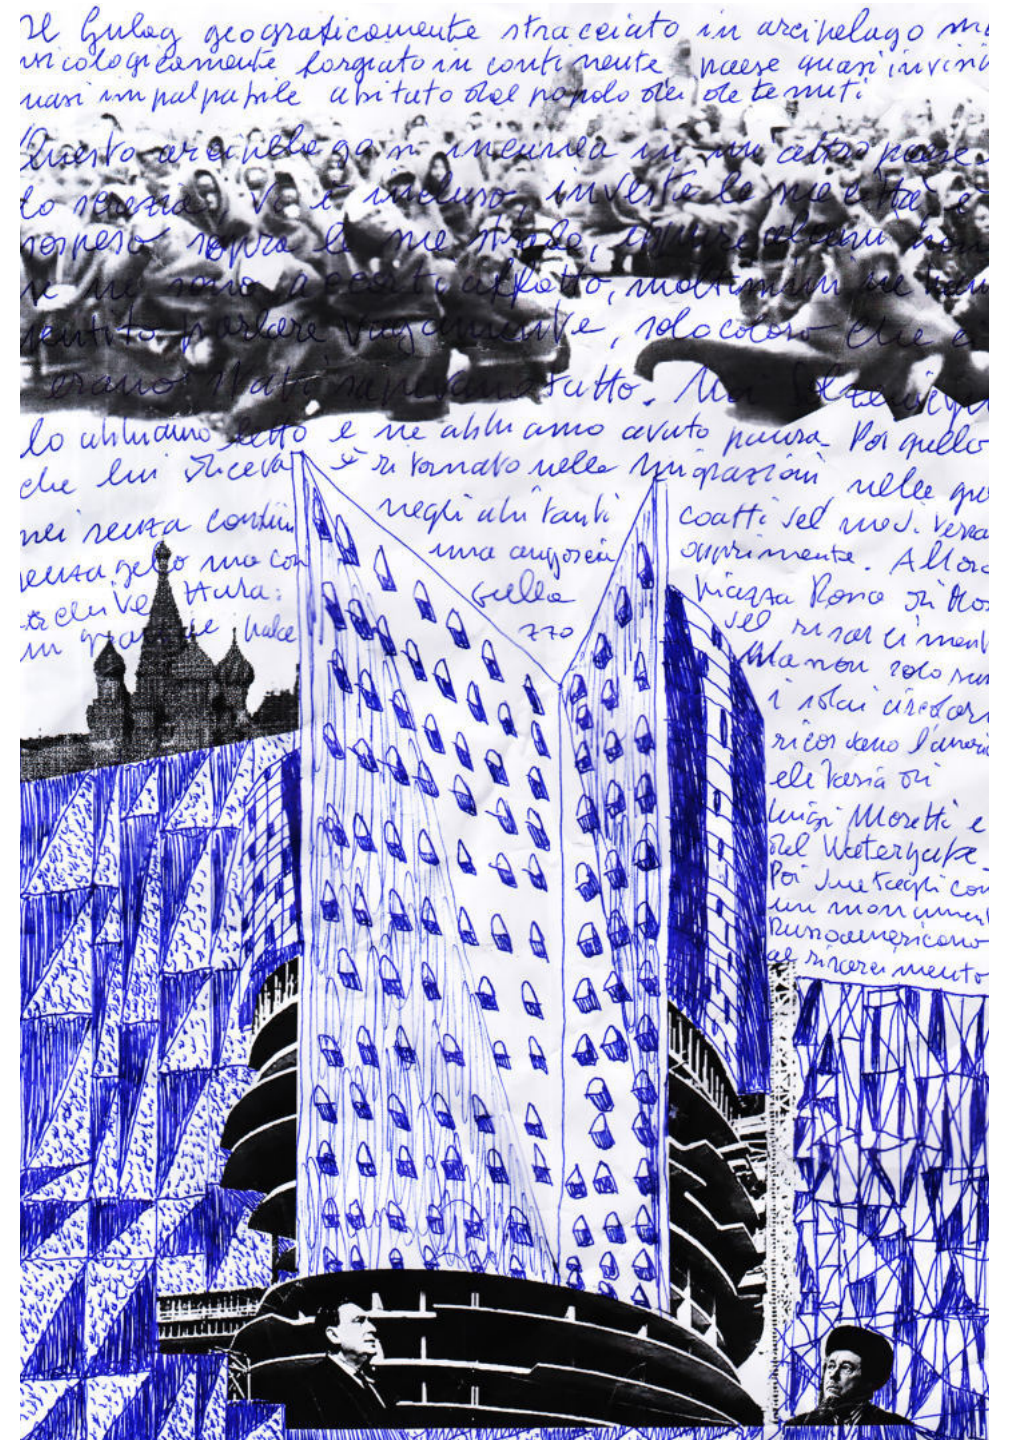 Il Gulag geograficamente stracciato in arcipelago ma
psicologicamente forgiato in continente paese quasi invisi
quasi impalpabile abitato dal popolo dei detenuti.
Questo arcipelago si incunea in un altro paese
lo screzia, vi è incluso, investe le sue città è
sospeso sopra le sue strade, eppure alcuni non
se ne sono accorti affatto, moltissimi ne han
sentito parlare vagamente, solo coloro che ci
erano stati sapevano tutto. Noi
lo abbiamo letto e ne abbiamo avuto paura. Poi quello
che lui diceva è ritornato nelle migrazioni, nelle
senza confini negli abitanti coatti del
senza gelo ma con una angoscia opprimente. Allora
Sulla Piazza Rossa di Mos
un grande del risarciment
Ma non solo
i solai circolari
ricordano
di
Luigi Moretti e
del Watergate.
Poi
un monument
Russoamericano
al risarcimento